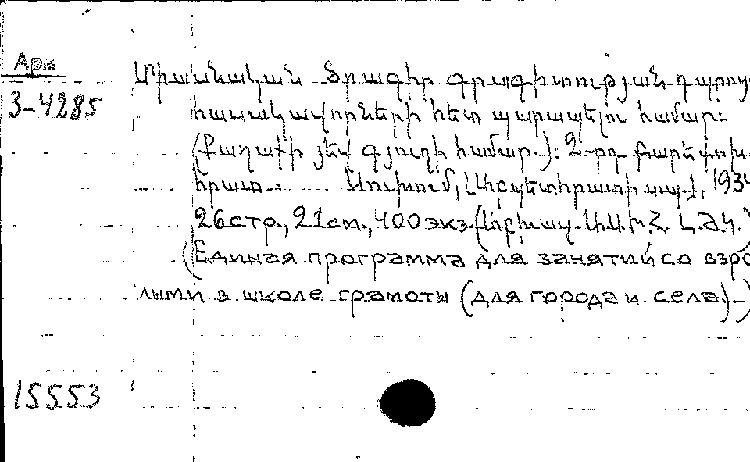 Арм
3-4285
Միասնական ծրագիր գրագիտության դպրոց
հասակավորների հետ պարապելու համար:
(Քաղաքի յեվ գյուղի համար.): 2-րդ բարեփոխ
հրատ. Սուխում, 193
26 стр., 21 см., 400 экз.
(Единая программа для занятий со взро
лыми в школе грамоты (для города и села).)
15553